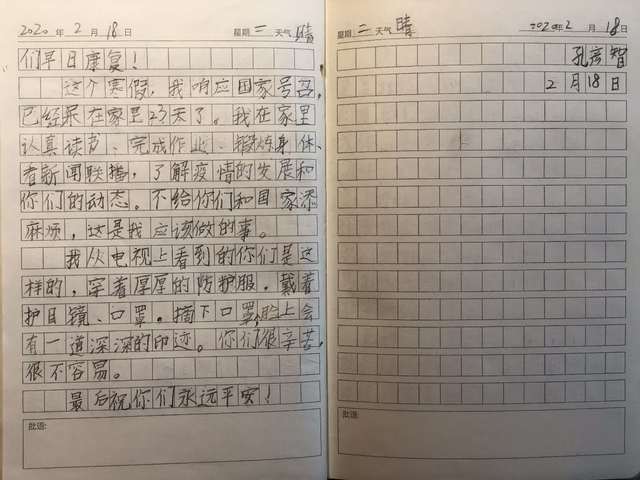 2020 年 2 月 18 日 星期 二 天气 晴
们早日康复！
这个寒假，我响应国家号召，
已经呆在家里23天了。我在家里
认真读书、完成作业、锻炼身体、
看新闻联播，了解疫情的发展和
你们的动态。不给你们和国家添
麻烦，这是我应该做的事。
我从电视上看到的你们是这
样的，穿着厚厚的防护服，戴着
护目镜、口罩。摘下口罩，脸上会
有一道深深的印迹。你们很辛苦，
很不容易。
最后祝你们永远平安！
批语:
星期 二 天气 晴 2020 年 2 月 18 日
孔彦智
2月18日
批语: